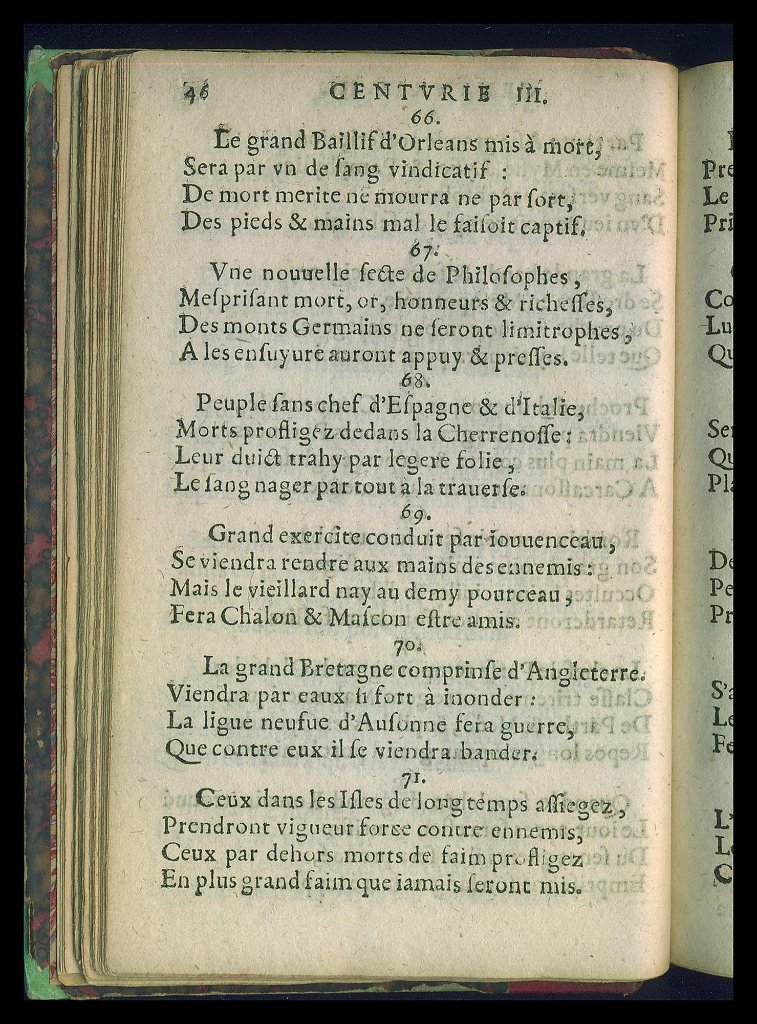 46 CENTVRIE III.
66.
Le grand Baillif d'Orleans mis à mort,
Sera par vn de ſang vindicatif :
De mort merite ne mourra ne par ſort,
Des pieds & mains mal le faiſoit captif.
67.
Vne nouuelle ſecte de Philoſophes,
Meſpriſant mort, or, honneurs & richeſſes,
Des monts Germains ne ſeront limitrophes,
A les enſuyure auront appuy & preſſes.
68.
Peuple ſans chef d'Eſpagne & d'Italie,
Morts profligez dedans la Cherrenoſſe :
Leur duict trahy par legere folie,
Le ſang nager par tout a la trauerſe.
69.
Grand exercite conduit par iouuenceau,
Se viendra rendre aux mains des ennemis :
Mais le vieillard nay au demy pourceau,
Fera Chalon & Maſcon eſtre amis.
70.
La grand Bretagne comprinſe d'Angleterre.
Viendra par eaux ſi fort à inonder :
La ligue neufue d'Auſonne fera guerre,
Que contre eux il ſe viendra bander.
71.
Ceux dans les Iſles de long temps aſſiegez,
Prendront vigueur force contre ennemis,
Ceux par dehors morts de faim profligez
En plus grand faim que iamais ſeront mis.